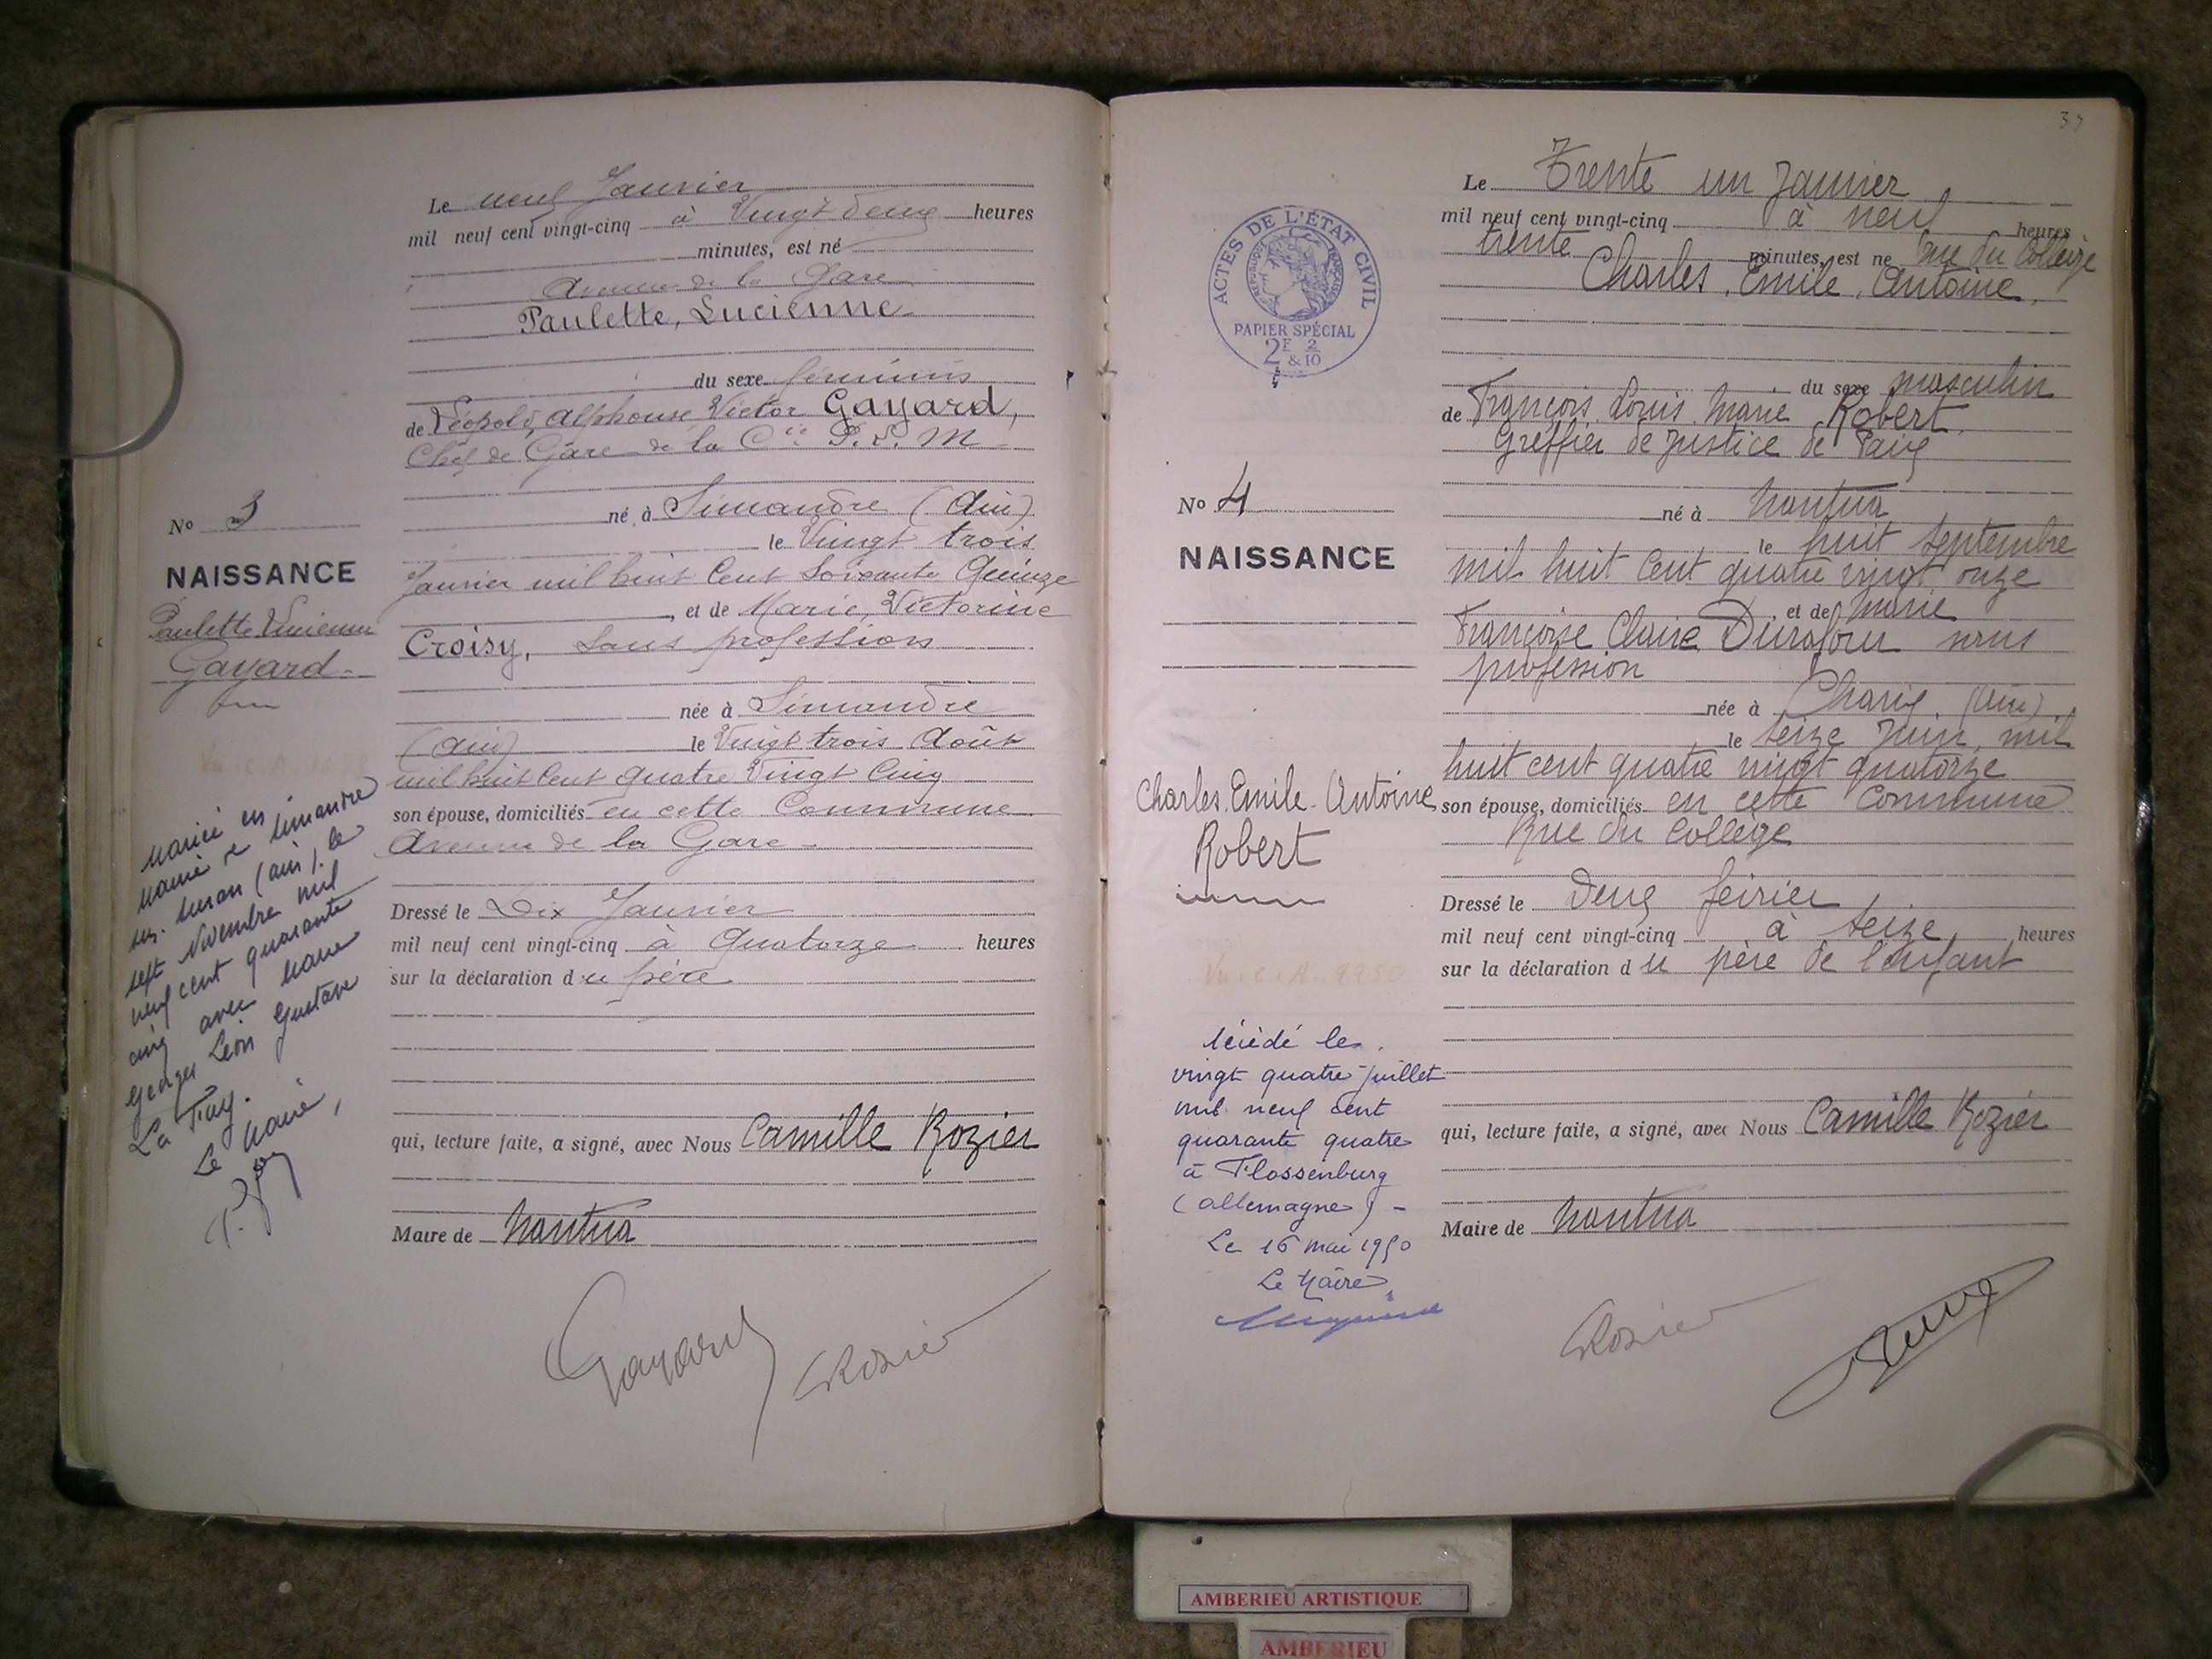 Le neuf Janvier
mil neuf cent vingt-cinq à Vingt Deux heures
minutes, est né
Avenue de la Gare
Paulette, Lucienne
du sexe féminin
de Léopold, Alphonse Victor Gayard,
Chef de Gare de la Cie P. L. M
né à Simandre (Ain)
le Vingt trois
Janvier mil huit Cent Soixante Quinze
, et de Marie, Victorine
Croisy, Sans profession
née à Simandre
(Ain) le Vingt trois Août
mil huit Cent Quatre Vingt Cinq
son épouse, domiciliés en cette Commune
Avenue de la Gare
Dressé le Dix Janvier
mil neuf cent vingt-cinq à Quatorze heures
sur la déclaration du père
qui, lecture faite, a signé, avec Nous Camille Rozier
Maire de Nantua
Gayard
CRozier
No 3
NAISSANCE
Paulette Lucienne
Gayard
Mariée en
Mairie de Simandre
sur Suran (Ain), le
sept Novembre mil
neuf cent quarante
cinq avec
Georges Léon Gustave
La Fay.
Le Maire,
37
Le Trente un Janvier
mil neuf cent vingt-cinq à neuf heures
trente minutes, est né rue du Collège
Charles, Emile, Antoine,
du sexe masculin
de François Louis Marie Robert
Greffier de Justice de Paix
né à Nantua
le huit Septembre
mil huit Cent quatre vingt onze
et de Marie
Françoise Claire Durafour sans
profession
née à Charix (Ain)
le Seize Juin mil
huit cent quatre vingt quatorze
son épouse, domiciliés en cette Commune
Rue du Collège
Dressé le Deux février
mil neuf cent vingt-cinq à Seize heures
sur la déclaration du père de l'enfant
qui, lecture faite, a signé, avec Nous Camille Rozier
Maire de Nantua
CRozier
ACTES DE L'ÉTAT CIVIL
RÉPUBLIQUE FRANÇAISE
PAPIER SPÉCIAL
2F 2
& 10
No 4
NAISSANCE
Charles. Emile. Antoine
Robert
décédé le
vingt quatre juillet
mil neuf cent
quarante quatre
à Flossenburg
(Allemagne) -
Le 16 mai 1950
Le Maire
AMBERIEU ARTISTIQUE
AMBERIEU